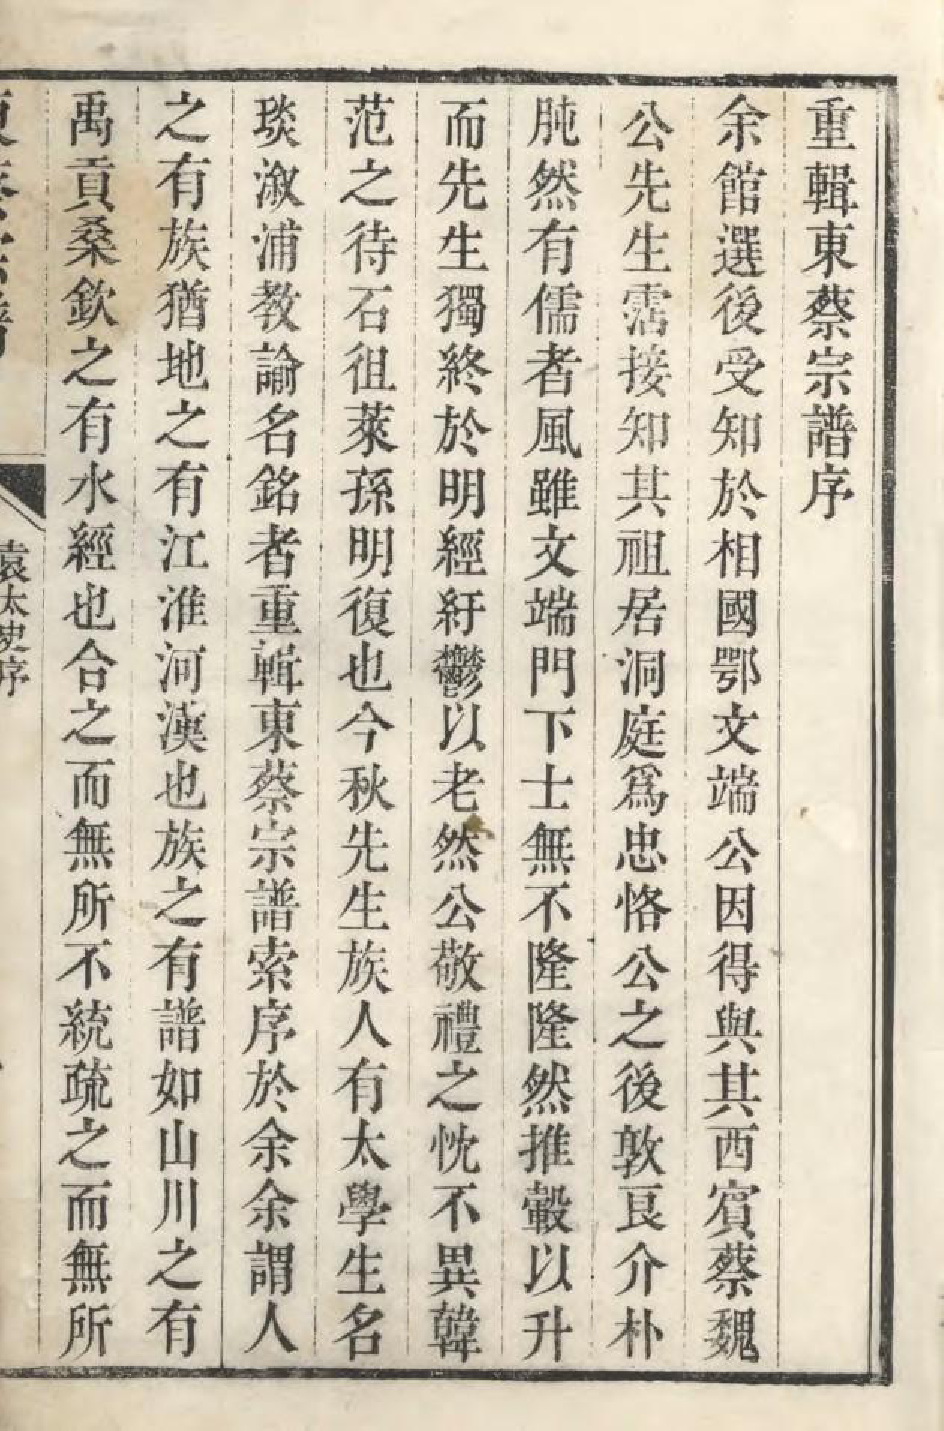 重輯東蔡宗譜序
余館選後受知於相國鄂文端公因得與其西賓蔡魏
公先生霑接知其祖居洞庭爲忠恪公之後敦良介朴
肫然有儒者風雖文端門下士無不隆隆然推轂以升
而先生獨終於明經紆鬱以老然公敬禮之忱不異韓
范之待石徂萊孫明復也今秋先生族人有太學生名
琰漵浦教諭名銘者重輯東蔡宗譜索序於余余謂人
之有族猶地之有江淮河漢也族之有譜如山川之有
禹貢桑欽之有水經也合之而無所不統疏之而無所
袁太史序